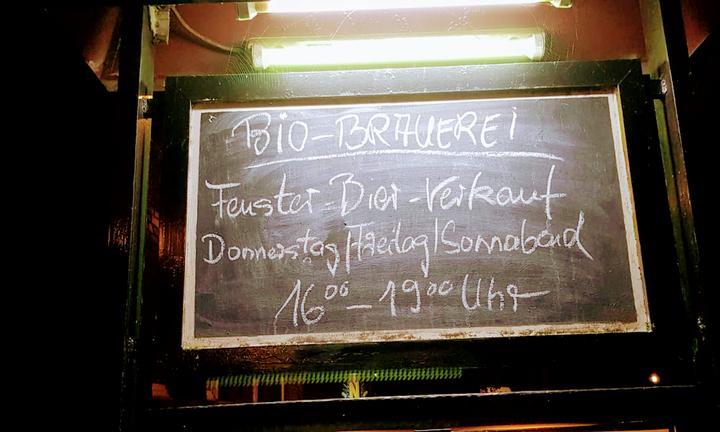 BIO-BRAUEREI
Fenster-Bier-Verkauf
Donnerstag/Freitag/Sonnabend
16⁰⁰-19⁰⁰ Uhr